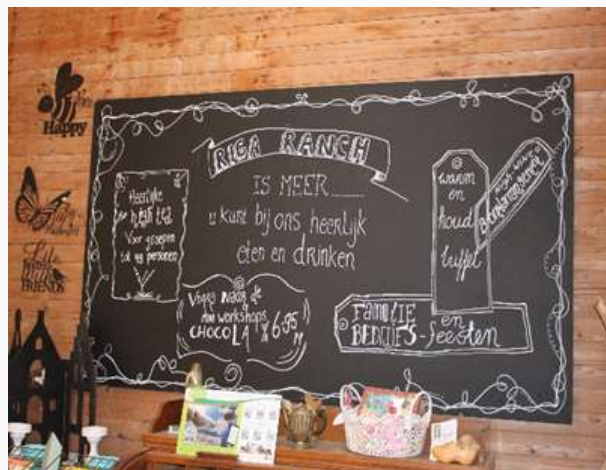 Happy
RIGA RANCH
IS MEER
u kunt bij ons heerlijk
eten en drinken
Heerlijke
high tea
Voor groepen
tot personen
Vraag naar de
workshops
CHOCOLA 6.95
warm
en
koud
buffet
FAMILIE en
-feesten
FRIENDS